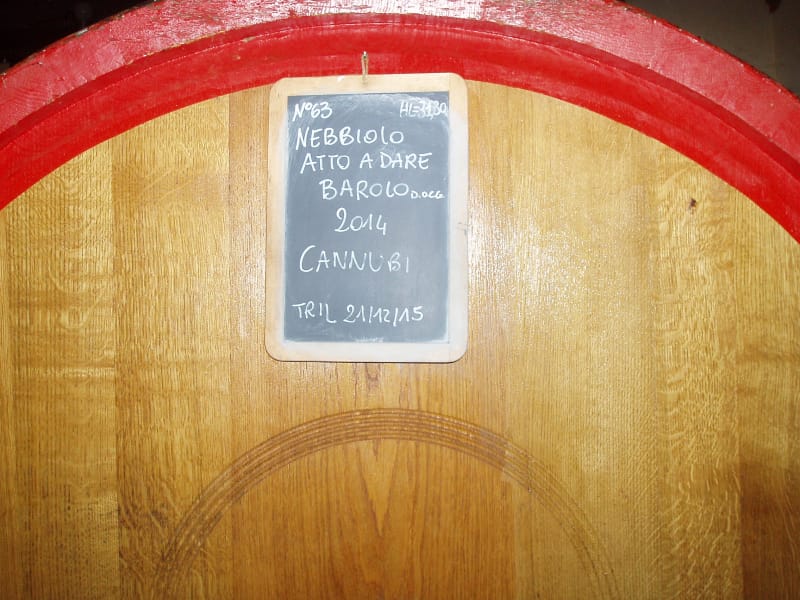 N°63 HL=31,30
NEBBIOLO
ATTO A DARE
BAROLO D.OCG
2014
CANNUBI
TRIL 21/12/15